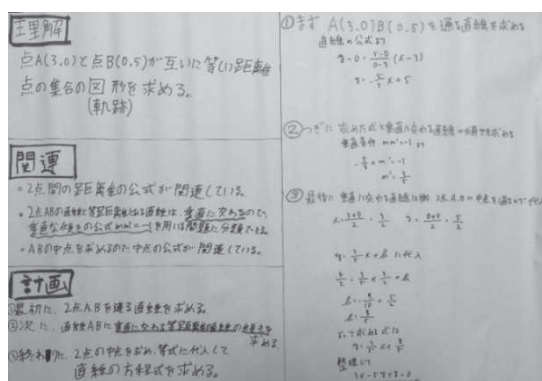 理解
点A(3.0)と点B(0.5)が互いに等しい距離
点の集合の図形を求める。
(軌跡)
関連
・2点間の距離の公式が関連している。
・2点ABの直線と等距離になる直線は、垂直に交わるので、
垂直な傾きの公式mm'=-1を用いる問題に分類できる。
・ABの中点を求めるので中点の公式が関連している。
計画
①最初に、2点A.Bを通る直線を求める。
②次に、直線ABに垂直に交わる等距離の直線の傾きを
求める
③終わりに、2点の中点を求め、等式に代入して
直線の方程式を求める。
①まず A(3.0)B(0.5)を通る直線を求める
直線の公式より
y-0=5-0/0-3(x-3)
y=-5/3x+5
②つぎに 求めた式と垂直に交わる直線の傾きを求める
垂直条件 mm'=-1 より
-5/3×m'=-1
m'=3/5
③最後に 垂直に交わる直線は 2点A.Bの中点を通る
x=3+0/2=3/2 y=0+5/2=5/2
y=3/5x+bに代入
5/2=3/5×3/2+b
よって求める式は
y=3/5x+8/5
整理して
3x-5y+8=0